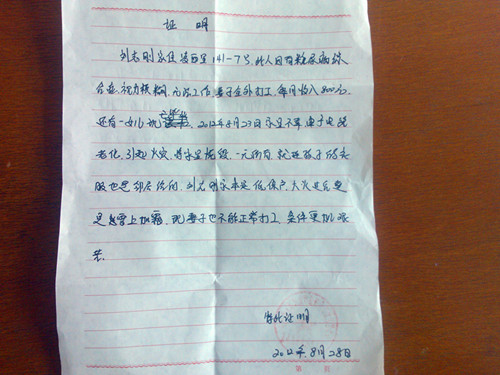 证明
刘志刚家住 西里141-7号,此人因有糖尿病综
合症,视力模糊,无法工作,妻子在外打工,每月收入800元,
还有一女儿现 。2012年8月23日 不幸,由于电线
老化,引起火灾,将家里烧毁,一无所有,就连孩子的衣
服也是邻居给的,刘志刚家本是低保户,大火过后更
是是雪上加霜,现妻子也不能正常打工,条件更加艰
苦。
特此证明
2012年8月28日